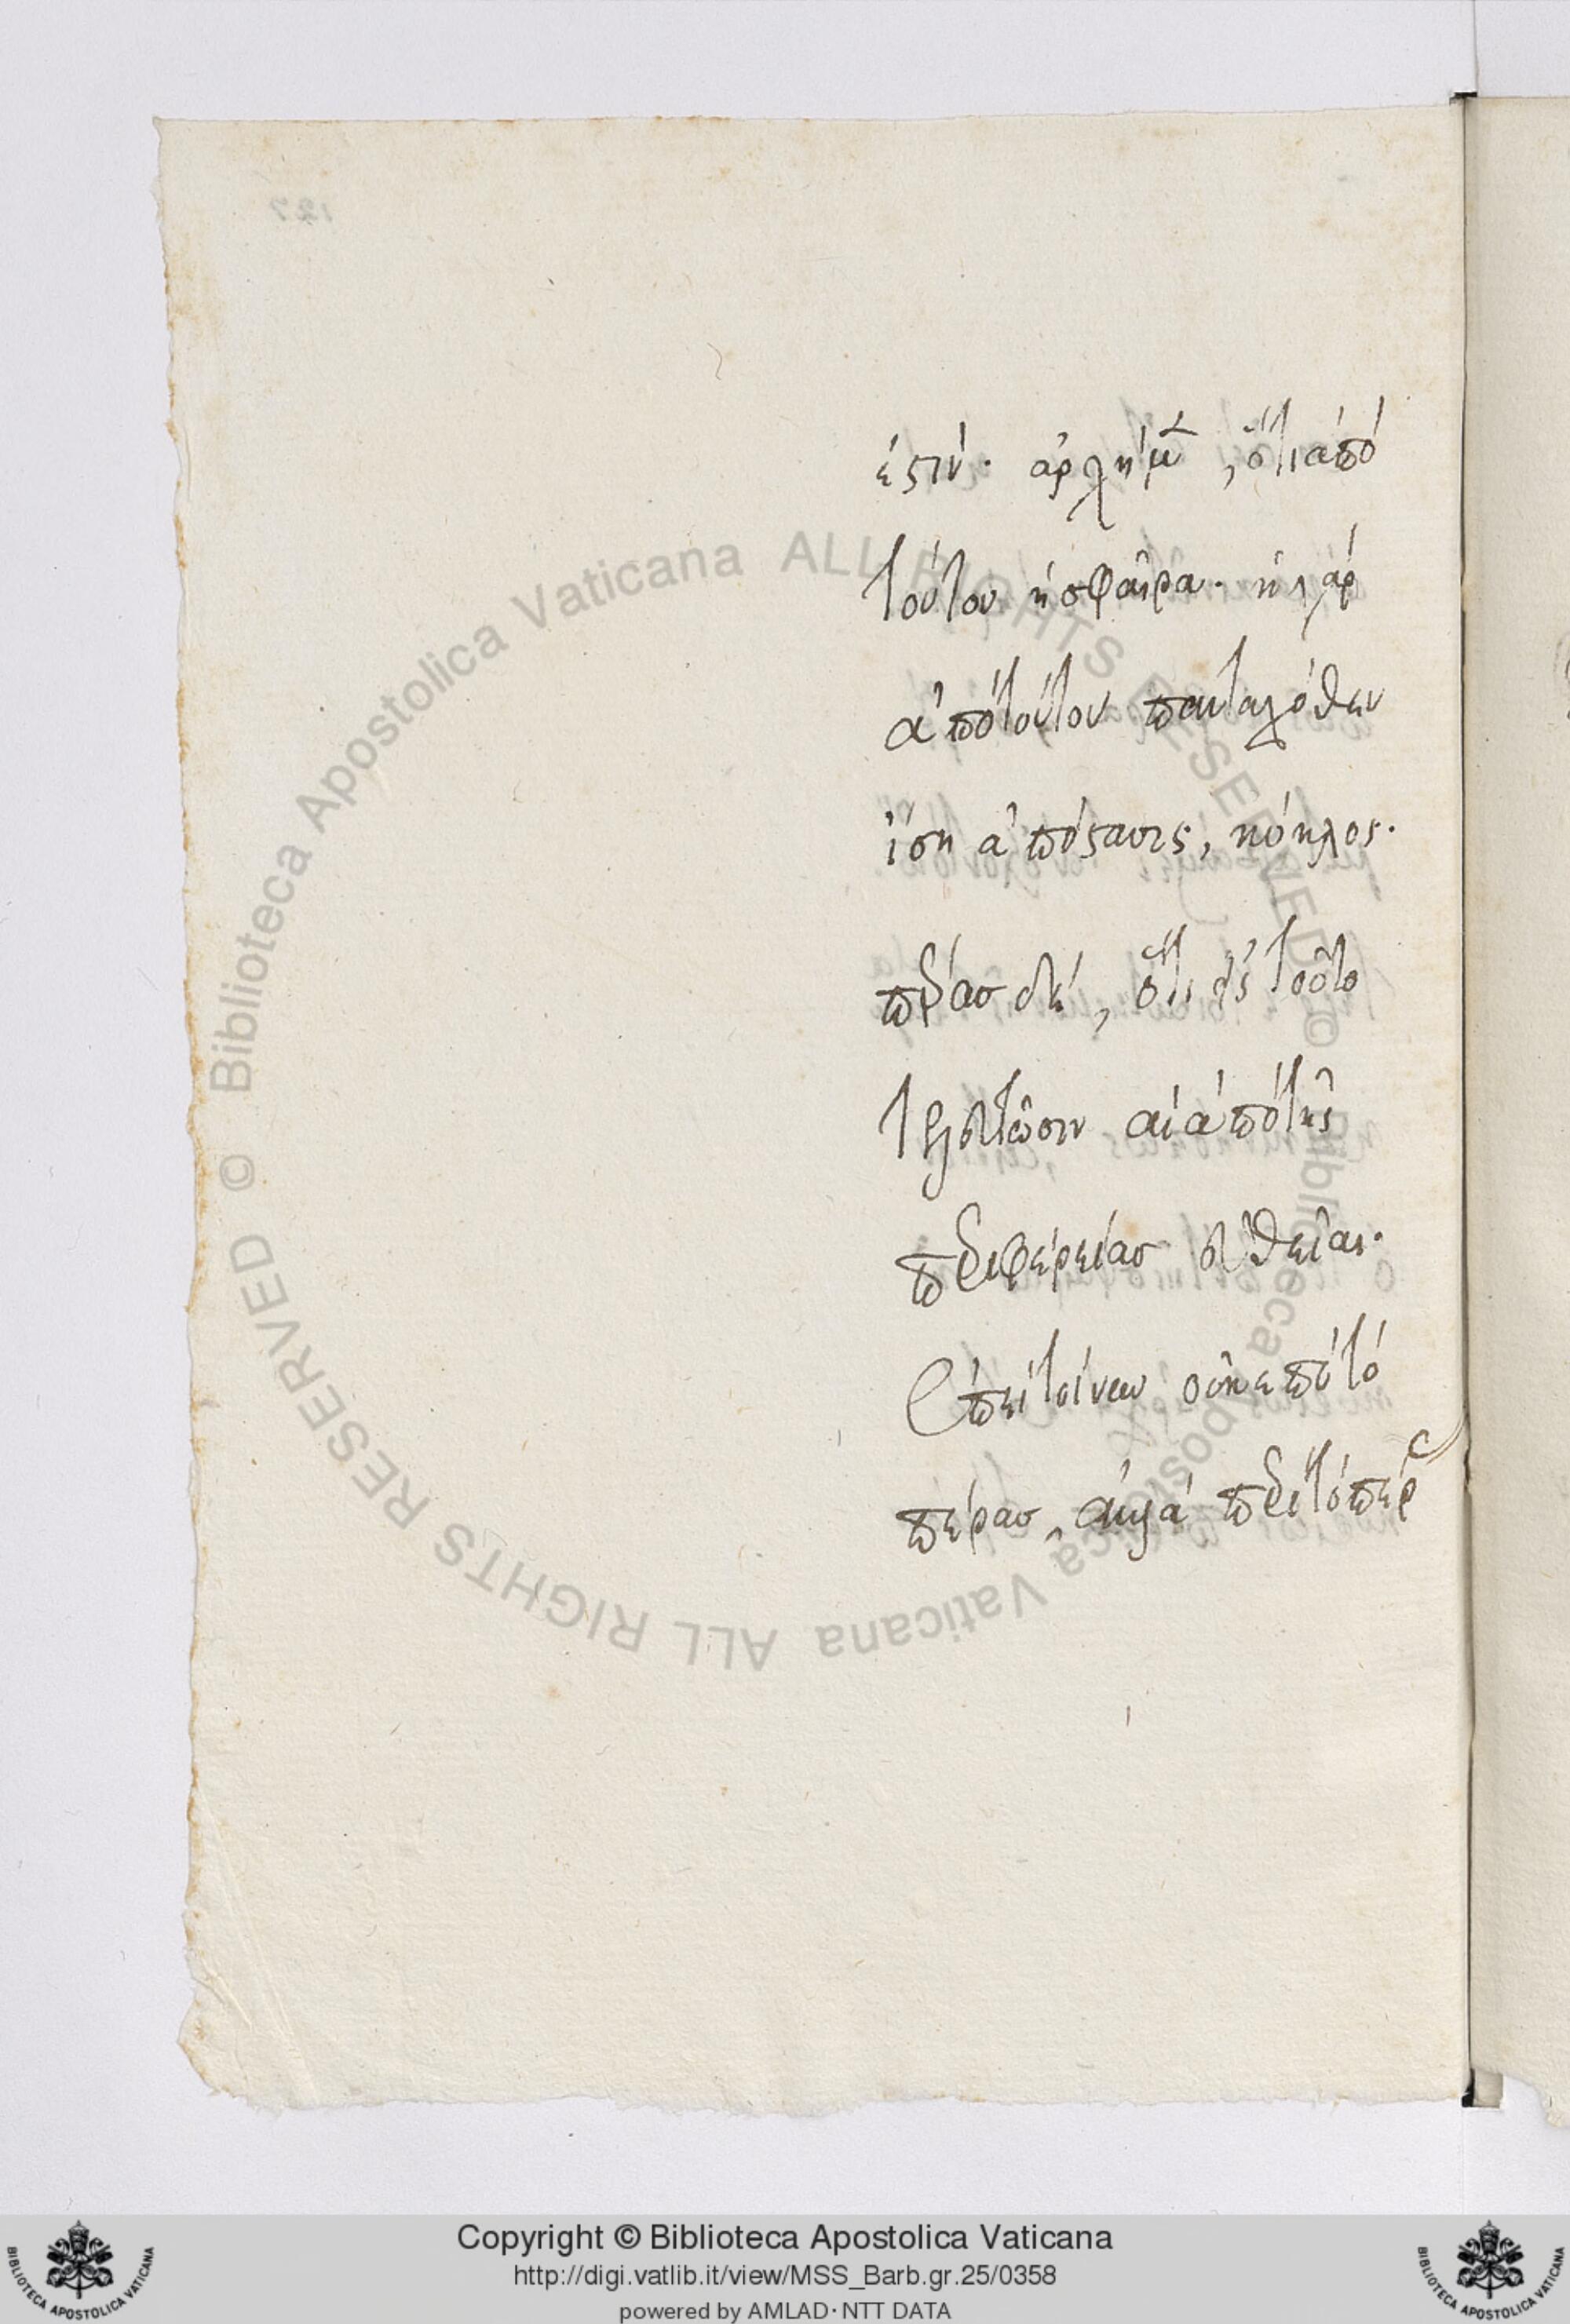 127
ἐστίν. ἀρχὴ μὲν, ὅτι ἀπὸ
τούτου ἡ σφαῖρα. ἡ γὰρ
ἀπὸ τούτου πανταχόθεν
ἴση ἀπόστασις, κύκλος.
πέρας δὲ, ὅτι εἰς τοῦτο
τελευτῶσιν αἱ ἀπὸ τῆς
περιφερείας εὐθεῖαι.
πέρας, ἀλλὰ περὶ τὸ πέρ
© Biblioteca Apostolica Vaticana ALL RIGHTS RESERVED © Biblioteca Apostolica Vaticana ALL RIGHTS RESERVED
Copyright © Biblioteca Apostolica Vaticana
http://digi.vatlib.it/view/MSS_Barb.gr.25/0358
powered by AMLAD · NTT DATA
BIBLIOTECA APOSTOLICA VATICANA
BIBLIOTECA APOSTOLICA VATICANA